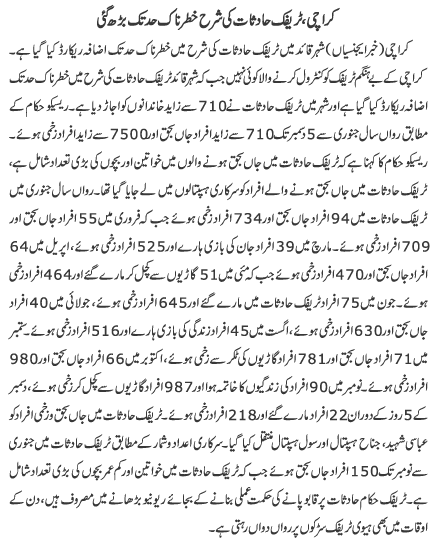 کراچی، ٹریفک حادثات کی شرح خطرناک حد تک بڑھ گئی
کراچی (خبر ایجنسیاں) شہر قائد میں ٹریفک حادثات کی شرح میں خطرناک حد تک اضافہ ریکارڈ کیا گیا ہے۔
کراچی کے بے ہنگم ٹریفک کو کنٹرول کرنے والا کوئی نہیں جب کہ شہر قائد ٹریفک حادثات کی شرح میں خطرناک حد تک
اضافہ ریکارڈ کیا گیا ہے اور شہر میں ٹریفک حادثات نے 710 سے زاید خاندانوں کو اجاڑ دیا ہے۔ ریسکیو حکام کے
مطابق رواں سال جنوری سے 5 دسمبر تک 710 سے زاید افراد جاں بحق اور 7500 سے زاید افراد زخمی ہوئے۔
ریسکیو حکام کا کہنا ہے کہ ٹریفک حادثات میں جاں بحق ہونے والوں میں خواتین اور بچوں کی بڑی تعداد شامل ہے،
ٹریفک حادثات میں جاں بحق ہونے والے افراد کو سرکاری ہسپتالوں میں لے جایا گیا تھا۔ رواں سال جنوری میں
ٹریفک حادثات میں 94 افراد جاں بحق اور 734 زخمی ہوئے جب کہ فروری میں 55 افراد جاں بحق اور
709 افراد زخمی ہوئے۔ مارچ میں 39 افراد جان کی بازی ہارے اور 525 افراد زخمی ہوئے، اپریل میں 64
افراد جاں بحق اور 470 افراد زخمی ہوئے جب کہ مئی میں 51 گاڑیوں سے کچل کر مارے گئے اور 464 افراد زخمی
ہوئے۔ جون میں 75 افراد ٹریفک حادثات میں مارے گئے اور 645 افراد زخمی ہوئے، جولائی میں 40 افراد
جاں بحق اور 630 افراد زخمی ہوئے، اگست میں 45 افراد زندگی کی بازی ہارے اور 516 افراد زخمی ہوئے۔ ستمبر
میں 71 افراد جاں بحق اور 781 افراد گاڑیوں کی ٹکر سے زخمی ہوئے، اکتوبر میں 66 افراد جاں بحق اور 980
افراد زخمی ہوئے۔ نومبر میں 90 افراد کی زندگیوں کا خاتمہ ہوا اور 987 افراد گاڑیوں سے کچل کر زخمی ہوئے، دسمبر
کے 5 روز کے دوران 22 افراد مارے گئے اور 218 افراد زخمی ہوئے۔ ٹریفک حادثات میں جاں بحق و زخمی افراد کو
عباسی شہید، جناح ہسپتال اور سول ہسپتال منتقل کیا گیا۔ سرکاری اعداد و شمار کے مطابق ٹریفک حادثات میں جنوری
سے نومبر تک 150 افراد جاں بحق ہوئے جب کہ ٹریفک حادثات میں خواتین اور کم عمر بچوں کی بڑی تعداد شامل
ہے۔ ٹریفک حکام حادثات پر قابو پانے کی حکمت عملی بنانے کے بجائے ریونیو بڑھانے میں مصروف ہیں، دن کے
اوقات میں بھی ہیوی ٹریفک سڑکوں پر رواں دواں رہتی ہے۔